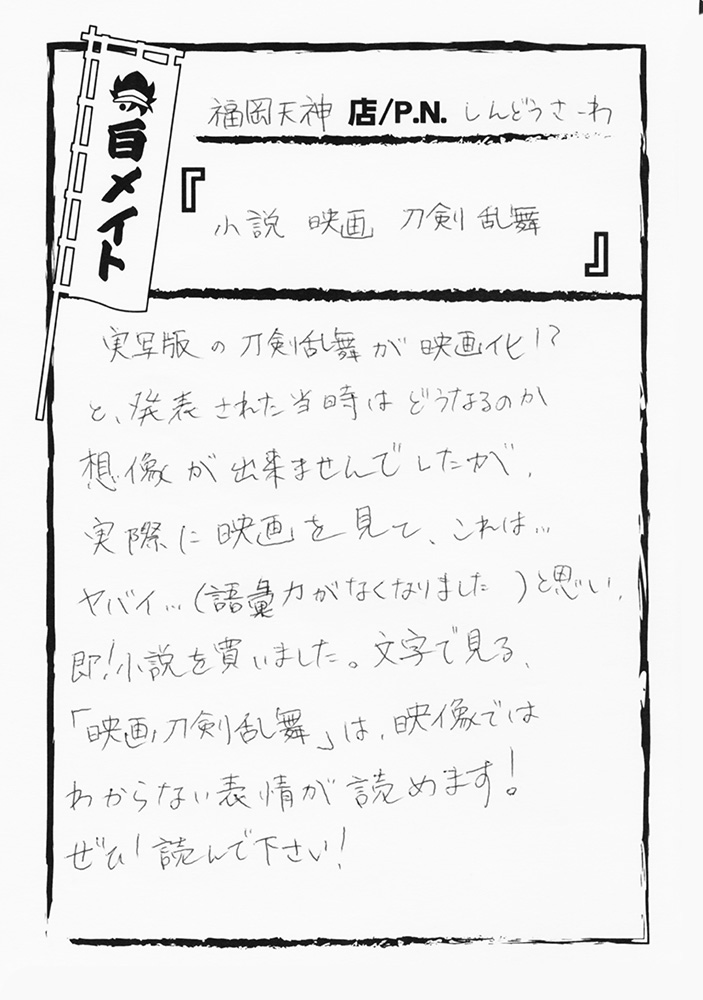 白メイト
福岡天神 店/P.N. しんどうさーわ
『小説 映画 刀剣乱舞』
実写版の刀剣乱舞が映画化!?
と、発表された当時はどうなるのか
想像が出来ませんでしたが、
実際に映画を見て、これは…
ヤバイ…(語彙力がなくなりました)と思い、
即!小説を買いました。文字で見る、
「映画刀剣乱舞」は、映像では
わからない表情が読めます!
ぜひ!読んで下さい!